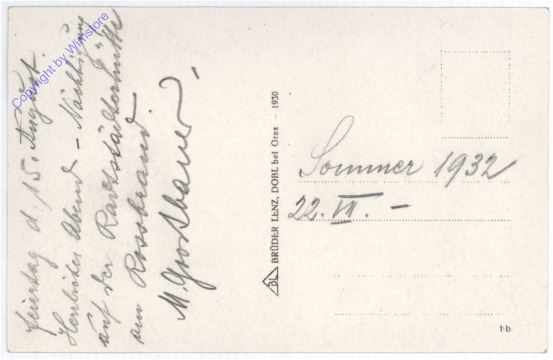 Feiertag d. 15. August.
Herrlicher Abend – Nächtigung
auf der Radstädterhütte
am Rossbrand.
M. Groß bauer
Copyright by Winstore
BRÜDER LENZ, DOBL bei Graz – 1930
BL
Sommer 1932
22. VII. –
bb